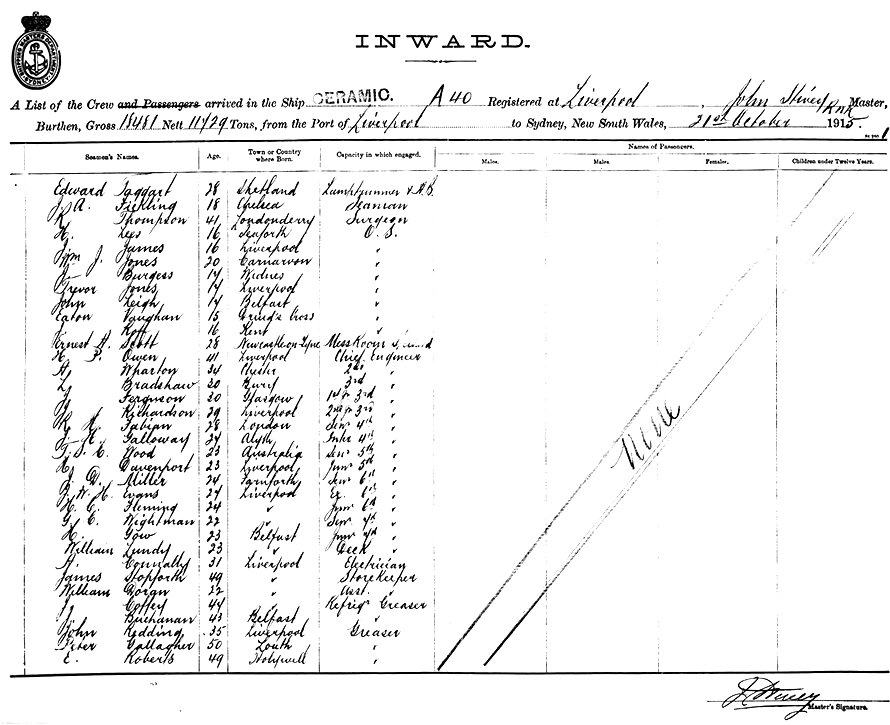 INWARD.
A List of the Crew and Passengers arrived in the Ship CERAMIC. A 40 Registered at Liverpool, John Master,
Burthen, Gross 18481 Nett 11729 Tons, from the Port of Liverpool to Sydney, New South Wales, 21st October 1915.
Seamen's Names. Age. Town or Country where Born. Capacity in which engaged. Names of Passengers.
Males. Males. Females. Children under Twelve Years.
Edward Taggart 28 Shetland Lamptrimmer & A.B.
J. A. Fickling 18 Chelsea Seaman
R. Thompson 41 Londonderry Surgeon
H. Lees 16 Seaforth O.S.
James 16 Liverpool "
Wm J. Jones 20 Carnarvon "
Burgess 14 Widnes "
Trevor Jones 14 Liverpool "
John Leigh 14 Belfast "
Eaton Vaughan 15 Cross "
16 Kent "
Ernest A. Scott 28 Newcastle on Tyne Messroom
H. P. Owen 41 Liverpool Chief Engineer
A. Wharton 34 Chester 2nd "
L. Bradshaw 30 Bury 3rd "
J. Ferguson 30 Glasgow 3rd "
J. Richardson 29 Liverpool 3rd "
R. H. Fabian 28 London Senr 4th "
Galloway 27 Alyth 4th "
Wood 23 Australia Senr 5th "
H. Davenport 23 Liverpool Junr 5th "
J. D. Miller 24 Senr 6th "
Evans 24 Liverpool Ex. 6th "
H. C. Fleming 24 " Junr 6th "
G. C. Wightman 22 " Senr 7th "
H. Gow 23 Belfast Junr 7th "
William Lundy 23 " Deck "
A. Connally 31 Liverpool Electrician
James Stopforth 49 " Storekeeper
William Doran 22 " Asst. "
J. Coffey 44 " Refrigr Greaser
J. Buchanan 43 Belfast "
John Redding 35 Liverpool Greaser
Peter Gallagher 50 Louth "
E. Roberts 49 Holywell "
None
Master's Signature.